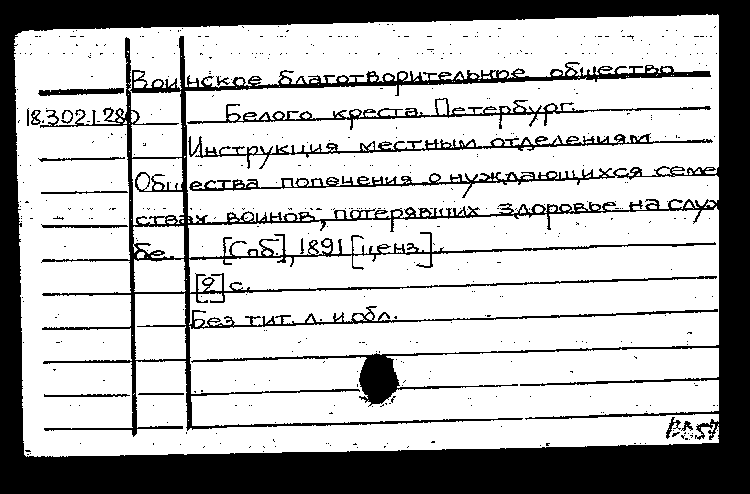 Воинское благотворительное общество
18.302.1.280 Белого креста. Петербург.
Инструкция местным отделениям
Общества попечения о нуждающихся семей
ствах воинов, потерявших здоровье на служ
бе. [Спб.], 1891 [ценз.].
[2] с.
Без тит. л. и обл.